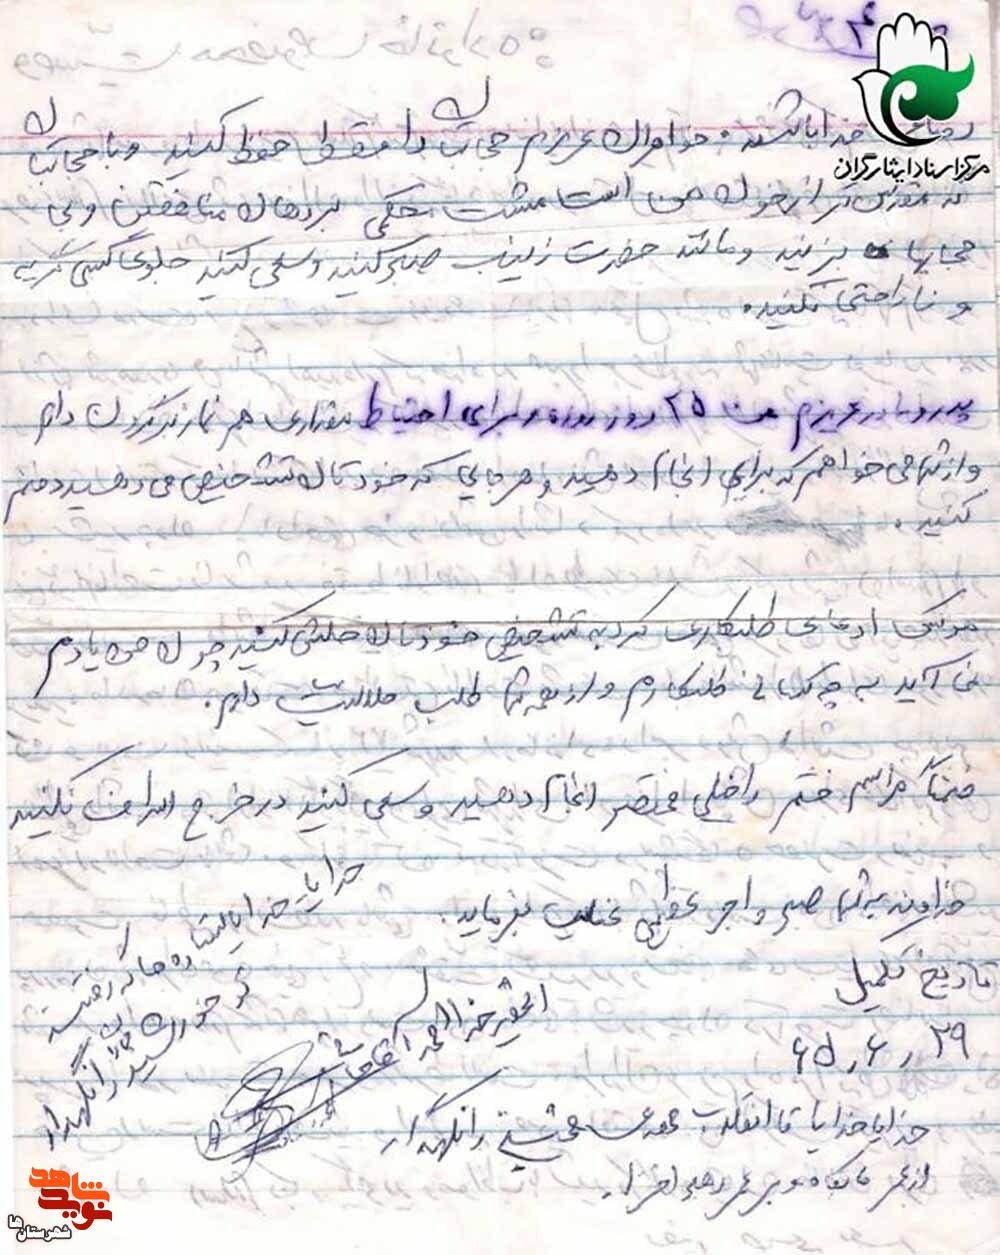 مرکز اسناد ایثارگران
خدا باشند. خواهران عزیزم حجابتان را فقط حفظ کنید و با حجابتان
که مقدس‌تر از خون من است مشت محکمی بر دهان منافقین و بی
حجابها بزنید و مانند حضرت زینب صبر کنید و سعی کنید جلوی کسی گریه
و ناراحتی نکنید.
پدر و مادر عزیزم من ۲۵ روز روزه و برای احتیاط مقداری هم نماز بر گردن دارم
و از شما می‌خواهم که برایم انجام دهید و هر جایی که خودتان تشخیص می‌دهید دفنم
کنید.
هر کس ادعای طلبکاری کرد به تشخیص خودتان حلش کنید چون من یادم
نمی‌آید به چه کسانی طلبکارم و از همه شما طلب حلالیت دارم.
ضمناً مراسم ختم را خیلی مختصر انجام دهید و سعی کنید در خرج اسراف نکنید
خداوند به شما صبر و اجر عنایت بفرماید.
تاریخ تکمیل
۶۵٫۶٫۲۹
الحقیر
خدایا خدایا
خدایا خدایا تا انقلاب مهدی خمینی را نگهدار
از عمر ما بکاه و بر عمر رهبر افزا.
نوید شاهد
شهرستان‌ها